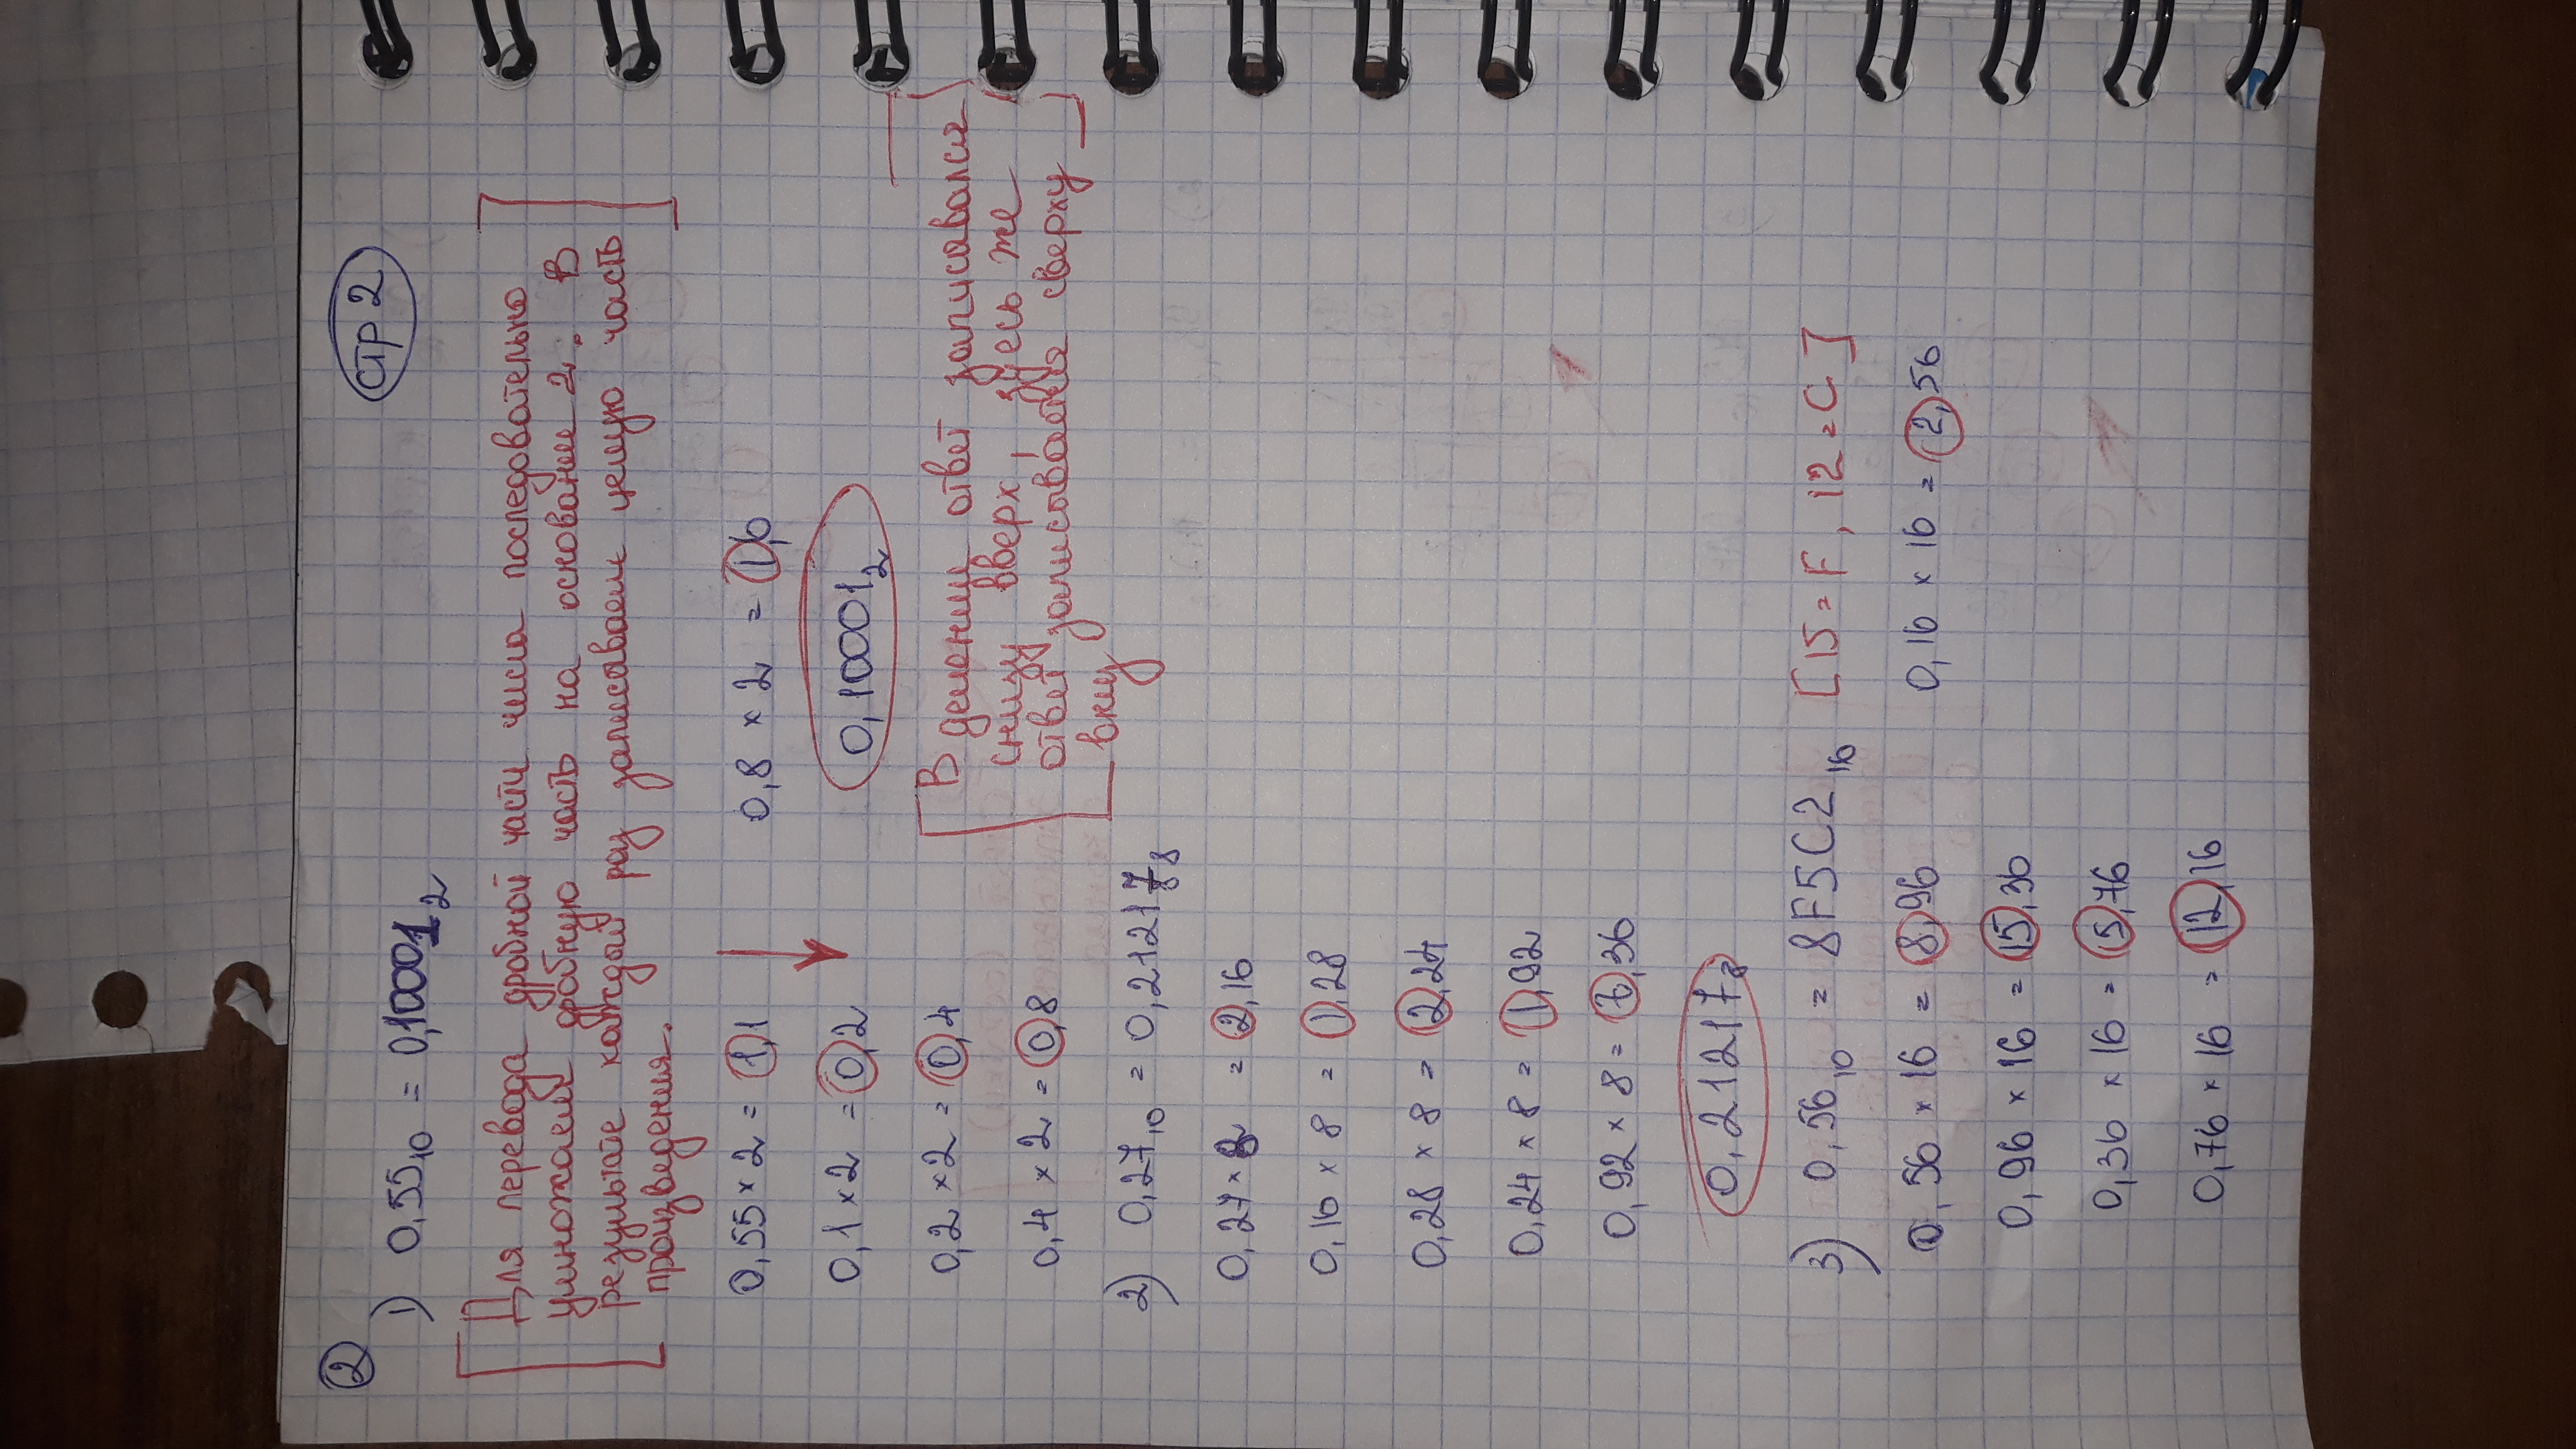 стр 2
②
1) 0,55₁₀ = 0,10001₂
[Для перевода дробной части числа последовательно
умножаем дробную часть на основание 2. В
результате каждый раз записываем целую часть
произведения.]
0,55 × 2 = 1,1
0,8 × 2 = 1,6
0,1 × 2 = 0,2
0,10001₂
0,2 × 2 = 0,4
0,4 × 2 = 0,8
[В делении ответ записывался
снизу вверх, здесь же
ответ записывается сверху
вниз]
2) 0,27₁₀ = 0,21217₈
0,27 × 8 = 2,16
0,16 × 8 = 1,28
0,28 × 8 = 2,24
0,24 × 8 = 1,92
0,92 × 8 = 7,36
0,21217₈
3) 0,56₁₀ = 8F5C2₁₆ [15 = F, 12 = C]
0,56 × 16 = 8,96
0,16 × 16 = 2,56
0,96 × 16 = 15,36
0,36 × 16 = 5,76
0,76 × 16 = 12,16